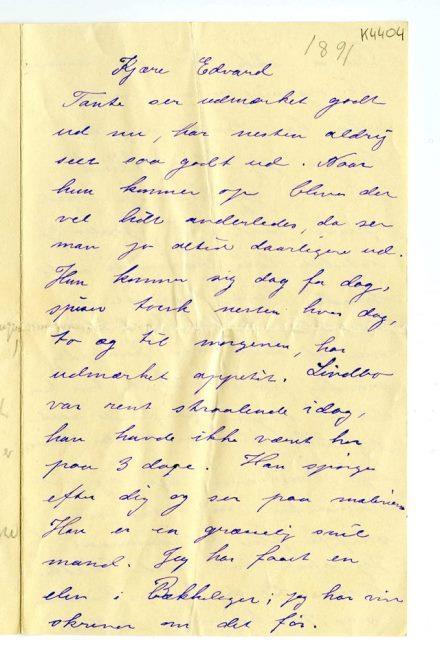 K4404
1891
Kjære Edvard
Tante ser udmærket godt
ud nu, har nesten aldrig
seet saa godt ud. Naar
hun kommer op bliver det
vel lidt anderledes, da ser
man jo altid daarligere ud.
Hun kommer sig dag for dag,
spiser torsk nesten hver dag,
to æg til morgenen, har
udmærket appetit. Lindbo
var rent straalende idag,
han havde ikke været her
paa 3 dage. Han spørger
efter dig og ser paa malerierne.
Han er en græsselig snil
mand. Jeg har faaet en
elev i Bækkelaget; jeg har vist
skrevet om det før.